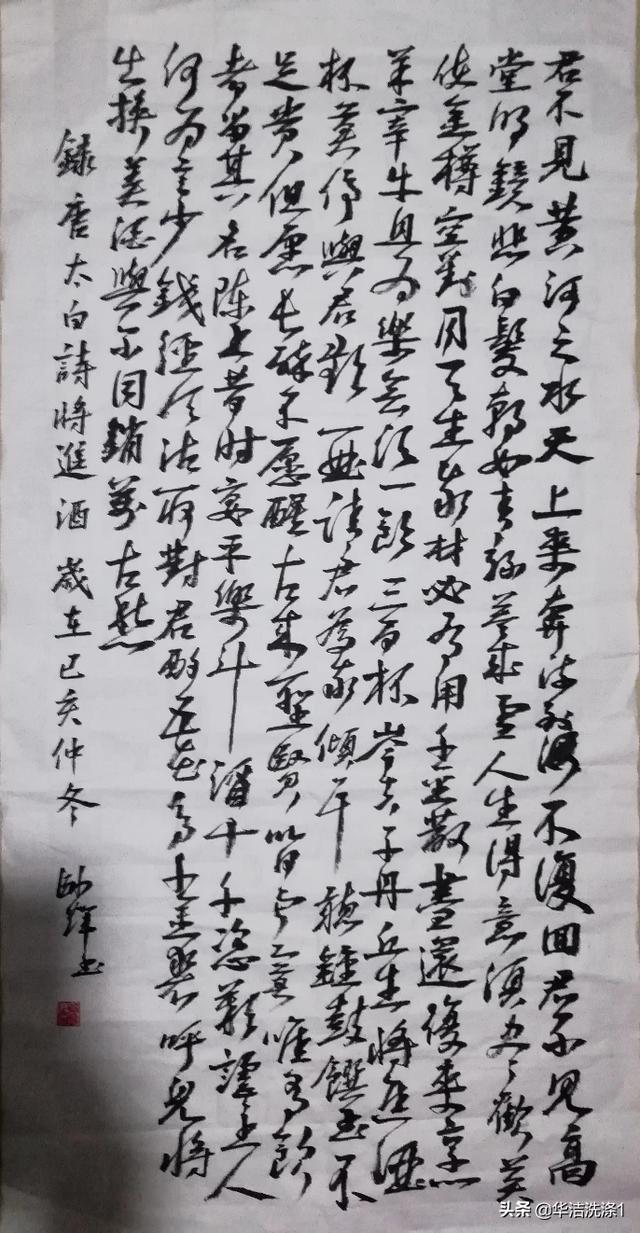 君不見黃河之水天上來奔流到海不復回君不見高
堂明鏡悲白髮朝如青絲暮成雪人生得意須盡歡莫
使金樽空對月天生我材必有用千金散盡還復來烹
羊宰牛且為樂會須一飲三百杯岑夫子丹丘生將進酒
杯莫停與君歌一曲請君為我傾耳聽鐘鼓饌玉不
足貴但願長醉不願醒古來聖賢皆寂寞惟有飲
者留其名陳王昔時宴平樂斗酒十千恣歡謔主人
何為言少錢徑須沽取對君酌五花馬千金裘呼兒將
出換美酒與爾同銷萬古愁
錄唐太白詩將進酒 歲在己亥仲冬 書
头条 @华洁洗涤1